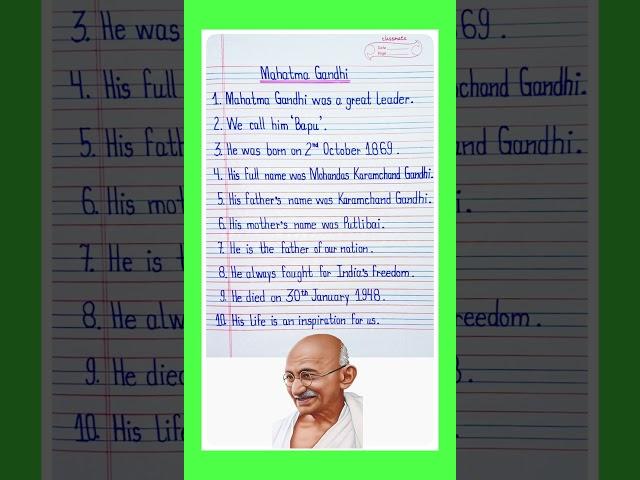 classmate
Date
Page
Mahatma Gandhi
1. Mahatma Gandhi was a great leader.
2. We call him 'Bapu'.
3. He was born on 2nd October 1869.
4. His full name was Mohandas Karamchand Gandhi.
5. His father's name was Karamchand Gandhi.
6. His mother's name was Putlibai.
7. He is the father of our nation.
8. He always fought for India's freedom.
9. He died on 30th January 1948.
10. His life is an inspiration for us.
3. He was
4. His full
5. His fath
6. His mot
7. He is t
8. He alw
9. He died
10. His life
69.
chand Gandhi.
nd Gandhi.
i.
eedom.
8.